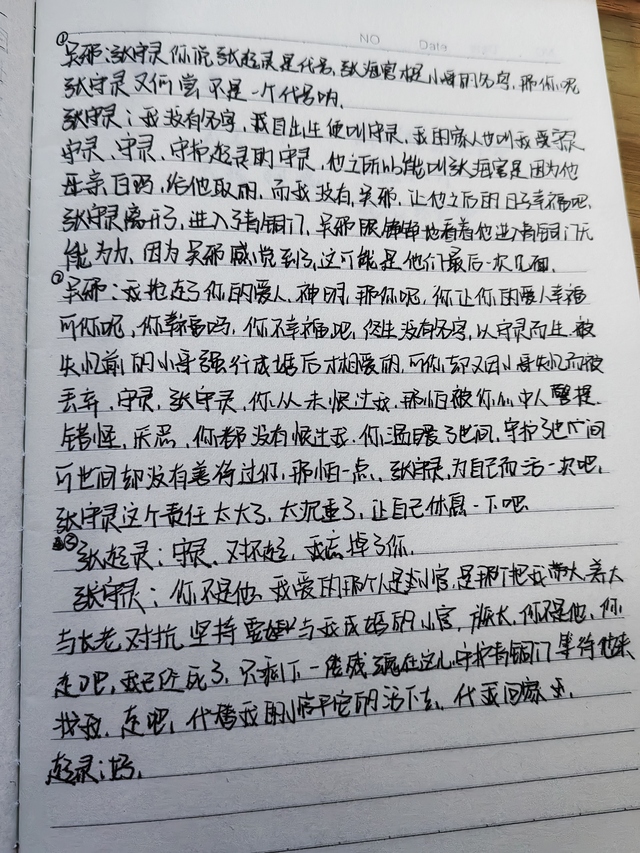 NO
Date
①
吴邪：张守灵你说张起灵是代号，张海官才是小哥的名字，那你呢
张守灵又何尝不是一个代号呐，
张守灵：我没有名字，我自出生便叫守灵，我的家人也叫我爱
守灵，守灵，守护起灵的守灵，他之所以能叫张海官是因为他
母亲白玛，给他取的，而我没有，吴邪，让他之后的日子幸福吧，
张守灵离开了，进入了青铜门，吴邪眼睁睁地看着他进入青铜门无
能为力，因为吴邪感觉到了，这可能是他们最后一次见面，
②
吴邪：我抢走了你的爱人，神明，那你呢，你让你的爱人幸福
可你呢，你幸福吗，你不幸福吧，终生没有名字，以守灵而生，被
失忆前的小哥强行成婚后才相爱的，可你却又因小哥失忆而被
丢弃，守灵，张守灵，你从未恨过我，那怕被你心中人警惕，
错怪，厌恶，你都没有恨过我，你温暖了世间，守护了世间
可世间却没有善待过你，那怕一点，张守灵，为自己而活一次吧，
张守灵这个责任太大了，太沉重了，让自己休息一下吧
③张起灵：守灵，对不起，我忘掉了你，
张守灵：你不是他，我爱的那个人是小官，是那个把我带大，养大
与长老对抗，坚持要与我成婚的小官，族长，你不是他，你
走吧，我已经死了，只剩下一缕残魂在这儿守护青铜门等待他来
找我，走吧，代替我的小官平安的活下去，代我回家
起灵：好，